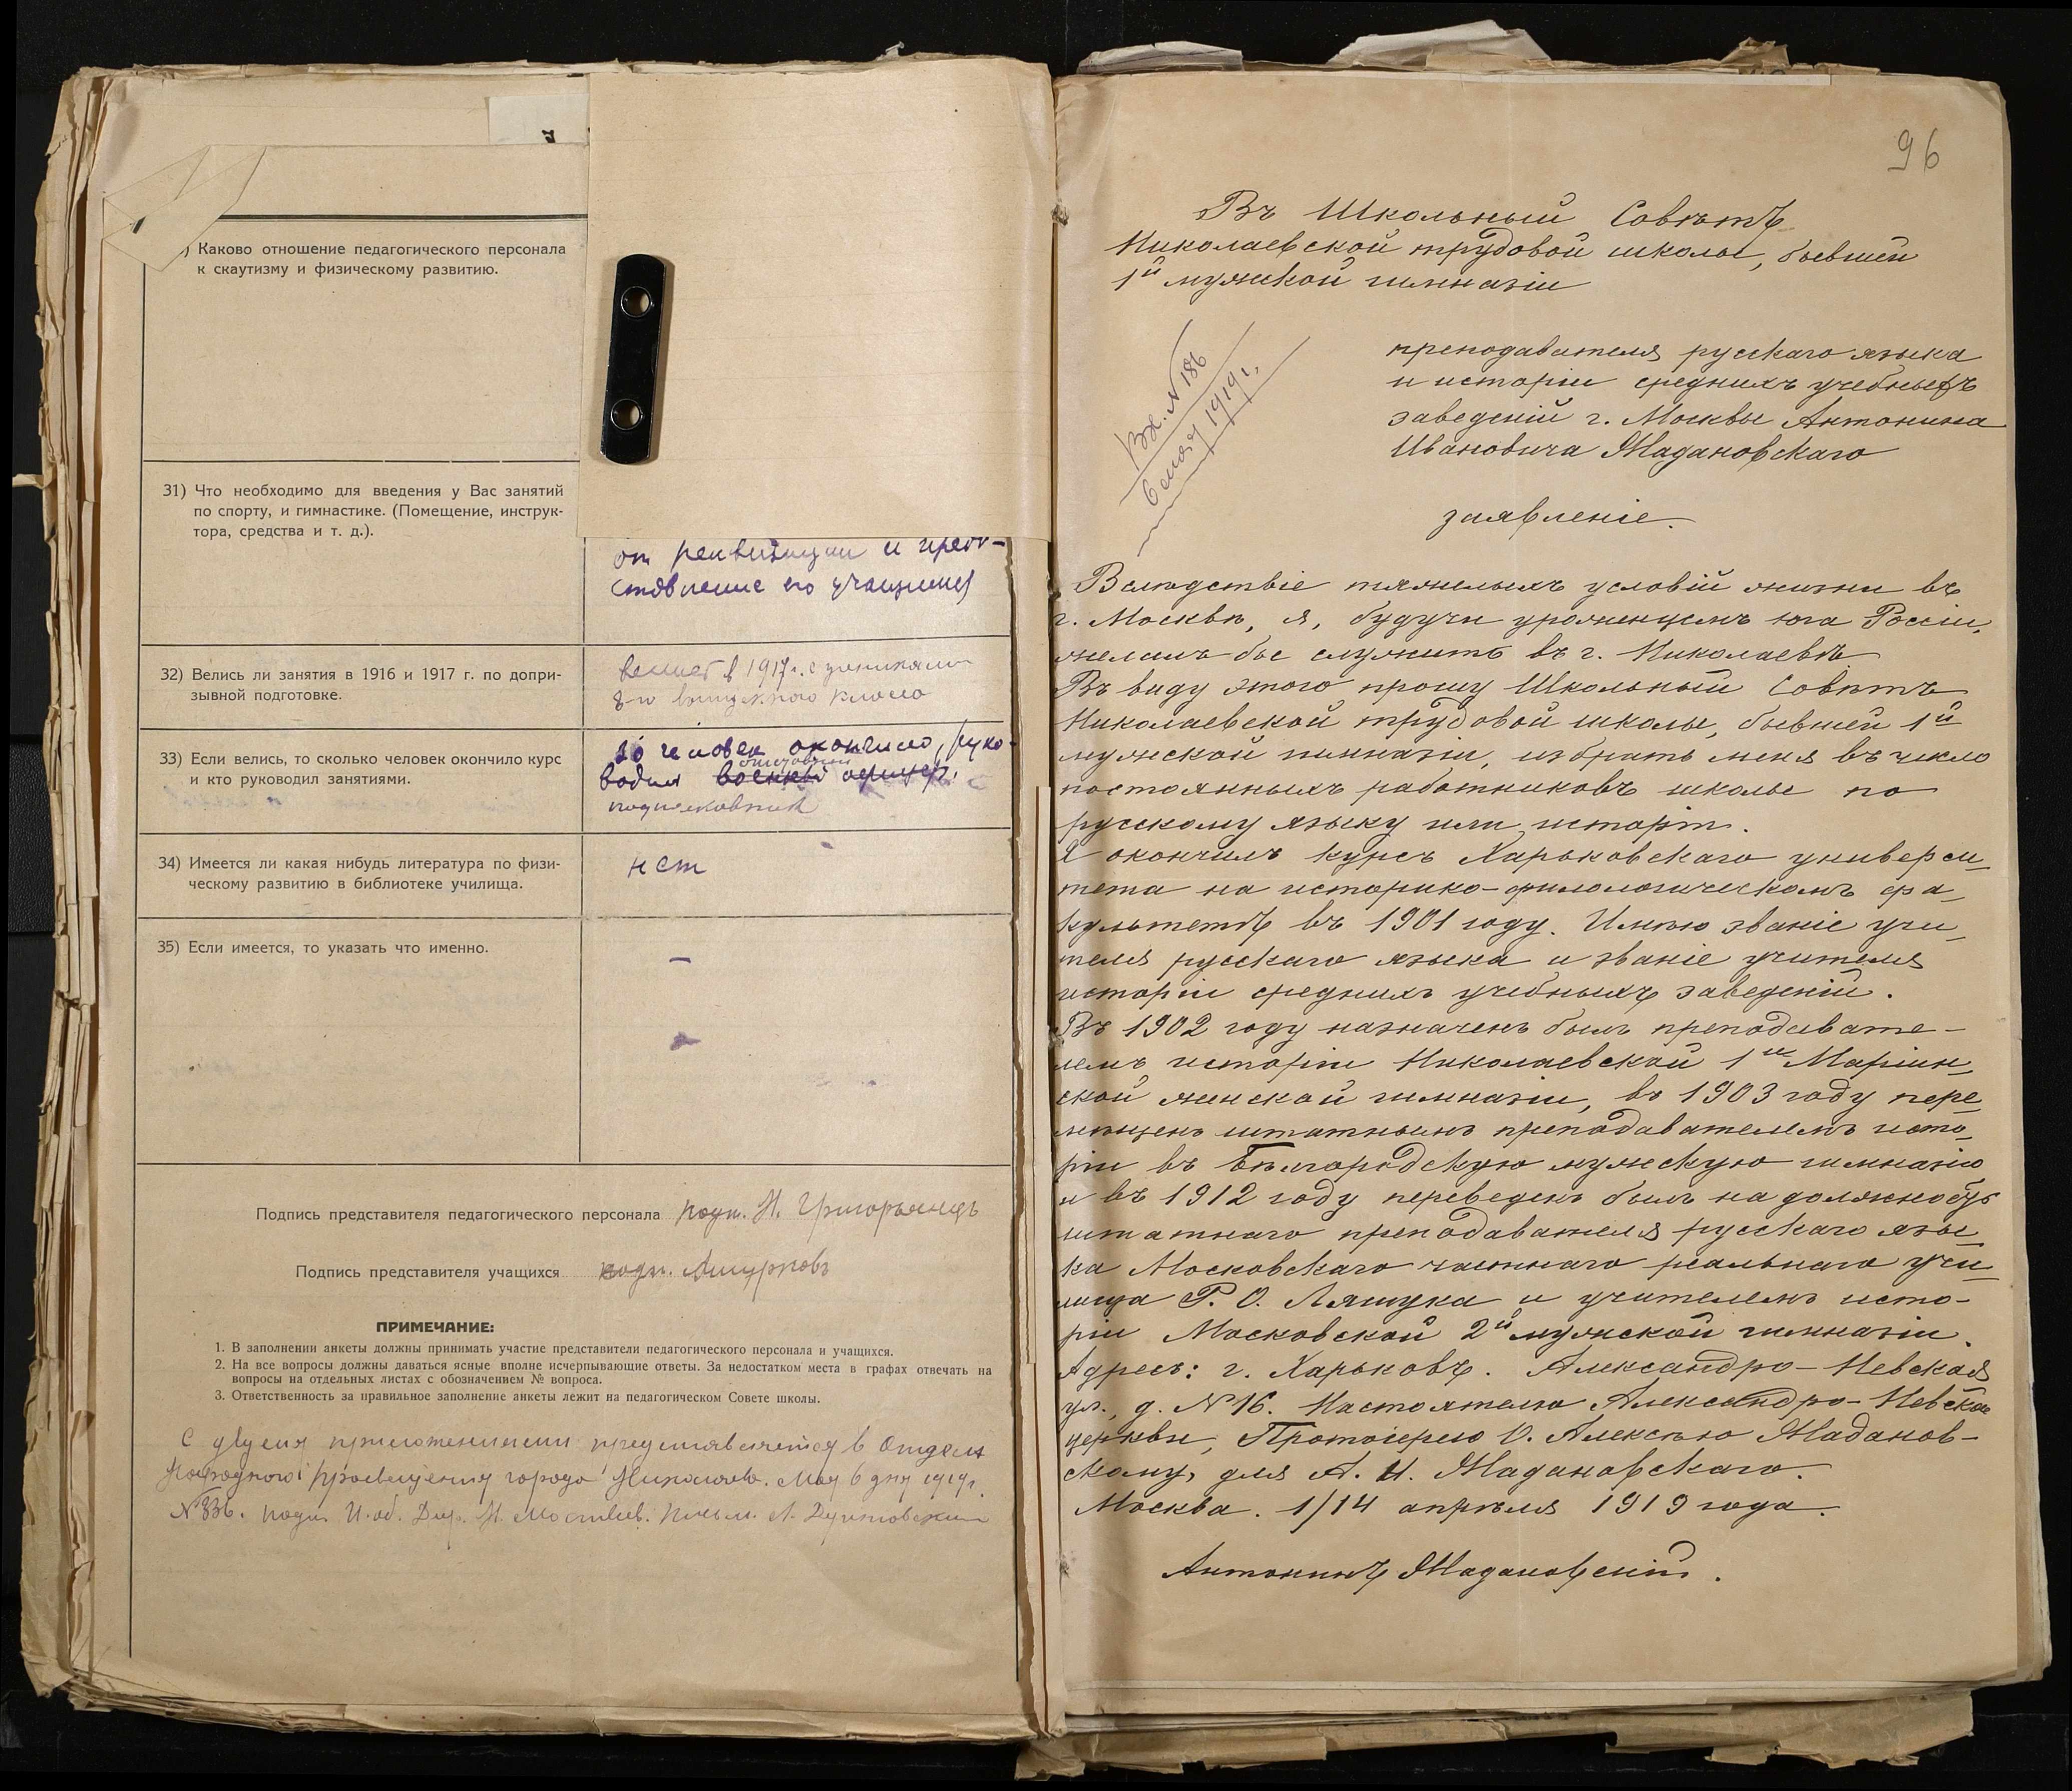 Каково отношение педагогического персонала
к скаутизму и физическому развитию.
31) Что необходимо для введения у Вас занятий
по спорту, и гимнастике. (Помещение, инструк-
тора, средства и т. д.).
от реквизиции и предо-
ставление его учащимся
32) Велись ли занятия в 1916 и 1917 г. по допри-
зывной подготовке.
в 1917 г. с учениками
8-го выпускного класса
33) Если велись, то сколько человек окончило курс
и кто руководил занятиями.
человек окончило, руко-
водил военный офицер.
подполковник
34) Имеется ли какая нибудь литература по физи-
ческому развитию в библиотеке училища.
нет
35) Если имеется, то указать что именно.
–
Подпись представителя педагогического персонала подп. Н. Григорьянцъ
Подпись представителя учащихся подп.
ПРИМЕЧАНИЕ:
1. В заполнении анкеты должны принимать участие представители педагогического персонала и учащихся.
2. На все вопросы должны даваться ясные вполне исчерпывающие ответы. За недостатком места в графах отвечать на
вопросы на отдельных листах с обозначением № вопроса.
3. Ответственность за правильное заполнение анкеты лежит на педагогическом Совете школы.
С двумя приложениями представляется в Отдел
Народного Просвещения города Николаева. Мая 6 дня 1919 г.
№ 336. подп. И. об. Дир. Н.
96
Въ Школьный Совѣтъ
Николаевской трудовой школы, бывшей
1й мужской гимназіи
Вх. N 186
6 мая 1919 г.
преподавателя русскаго языка
и исторіи среднихъ учебныхъ
заведеній г. Москвы Антонина
Ивановича Мадановскаго
заявленіе.
Вслѣдствіе тяжелыхъ условій жизни въ
г. Москвѣ, я, будучи уроженцемъ юга Россіи,
желалъ бы служить въ г. Николаевѣ
Въ виду этого прошу Школьный Совѣтъ
Николаевской трудовой школы, бывшей 1й
мужской гимназіи, избрать меня въ число
постоянныхъ работниковъ школы по
русскому языку или исторіи.
Я окончилъ курсъ Харьковскаго универси-
тета на историко-филологическомъ фа-
культетѣ въ 1901 году. Имѣю званіе учи-
теля русскаго языка и званіе учителя
исторіи среднихъ учебныхъ заведеній.
Въ 1902 году назначенъ былъ преподавате-
лемъ исторіи Николаевской 1й Маріин-
ской женской гимназіи, въ 1903 году пере-
мѣщенъ штатнымъ преподавателемъ исто-
ріи въ Бѣлгородскую мужскую гимназію
и въ 1912 году переведенъ былъ на должность
штатнаго преподавателя русскаго язы-
ка Московскаго частнаго реальнаго учи-
лища Г. О. Ляшука и учителемъ исто-
ріи Московской 2й мужской гимназіи.
Адресъ: г. Харьковъ. Александро-Невская
ул., д. N 16. Настоятелю Александро-Невской
церкви, Протоіерею О. Алексѣю Маданов-
скому, для А. И. Мадановскаго.
Москва. 1/14 апрѣля 1919 года.
Антонинъ Мадановскій.